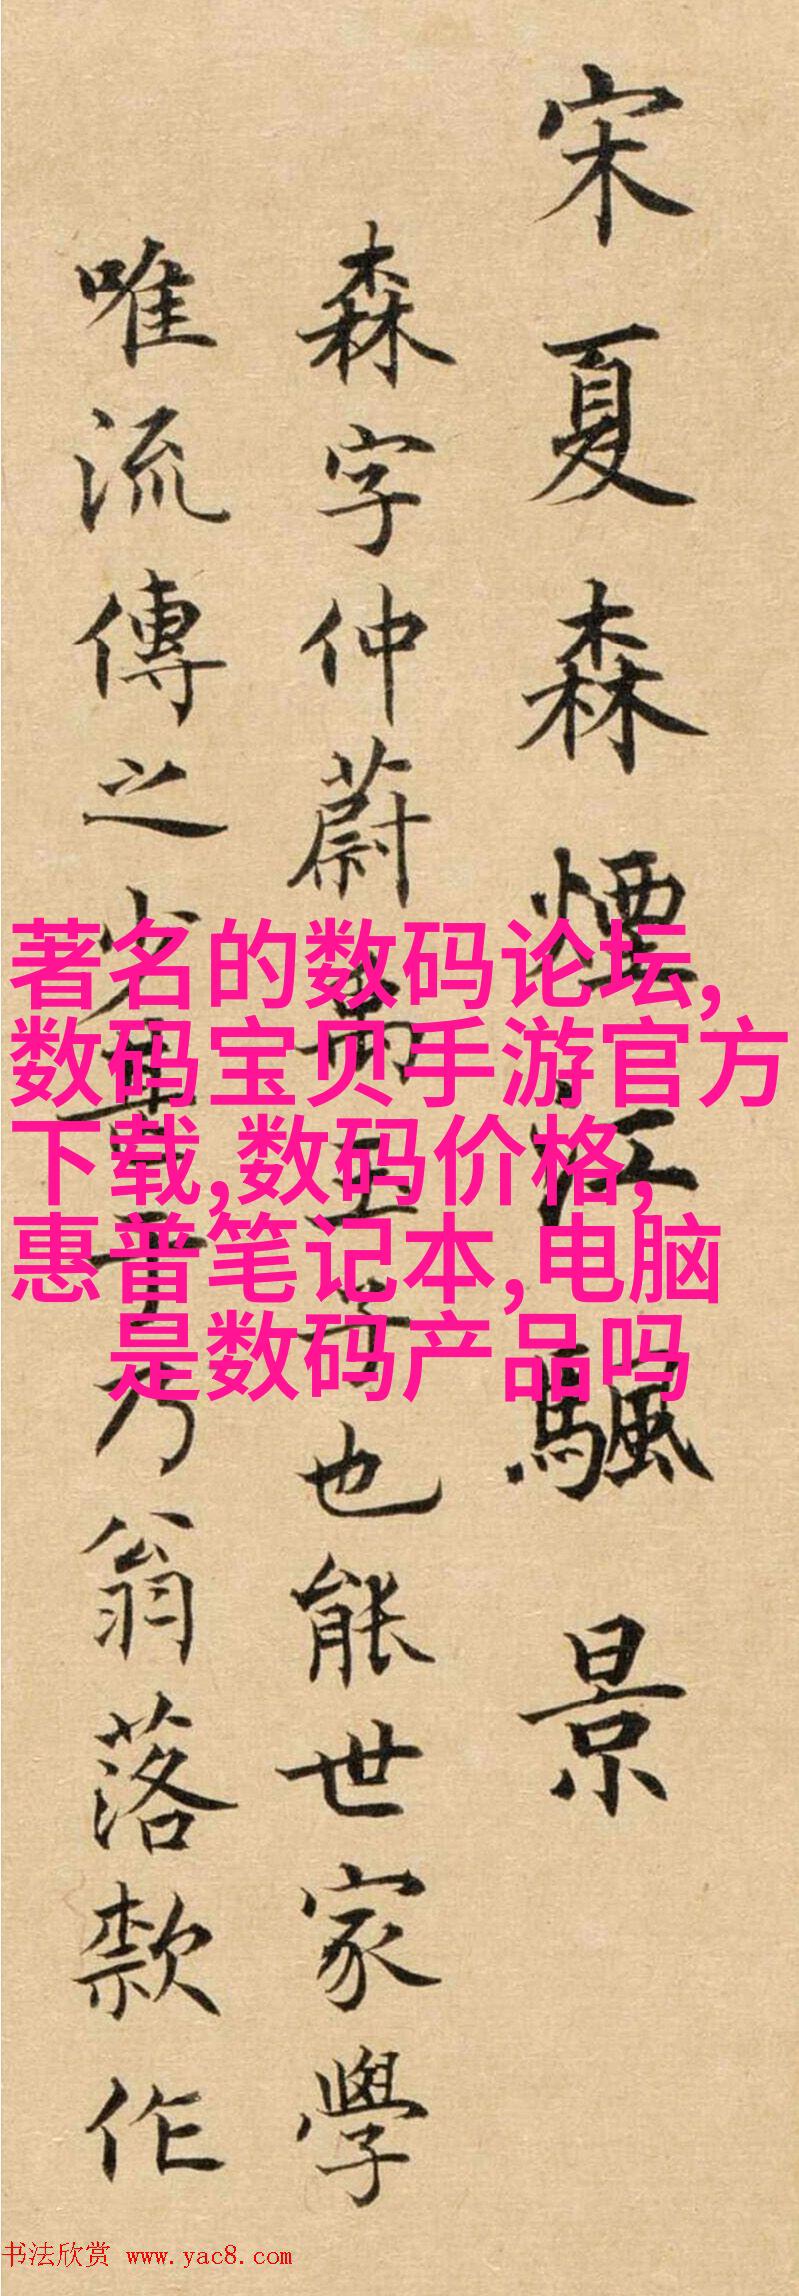 宋夏森煙江颿景
森字仲蔚為圭子也能世家學
唯流傳之少畫手乃翁落款作
著名的数码论坛,
数码宝贝手游官方
下载,数码价格,
惠普笔记本,电脑
是数码产品吗
书法欣赏 www.yac8.com